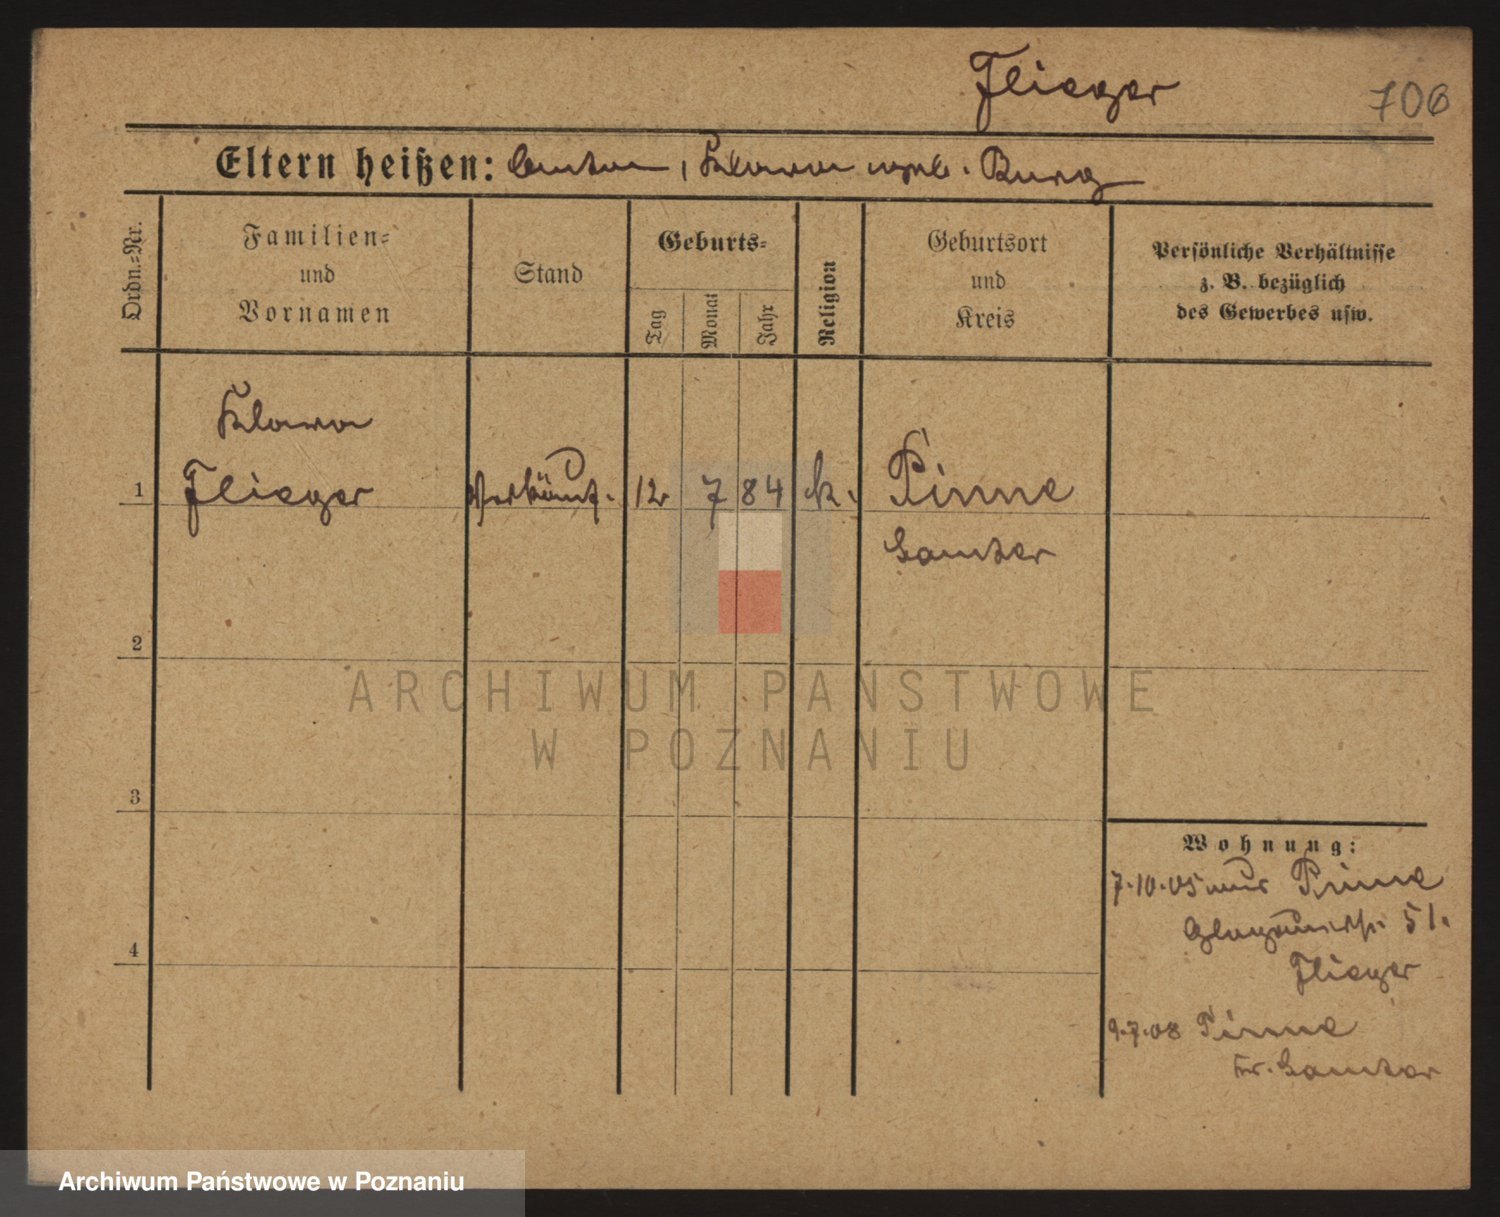 Flieger
706
Eltern heißen: Anton, Klara geb. Burg
Ordn.=Nr.
Familien=
und
Vornamen
Stand
Geburts=
Tag
Monat
Jahr
Religion
Geburtsort
und
Kreis
Persönliche Verhältnisse
z. B. bezüglich
des Gewerbes usw.
Klara
1 Flieger Verkäuf. 12 7 84 k. Pinne
Samter
2
3
4
Wohnung:
7.10.05 aus Pinne
51.
Flieger
9.7.08 Pinne
Kr. Samter
ARCHIWUM PAŃSTWOWE
W POZNANIU
Archiwum Państwowe w Poznaniu